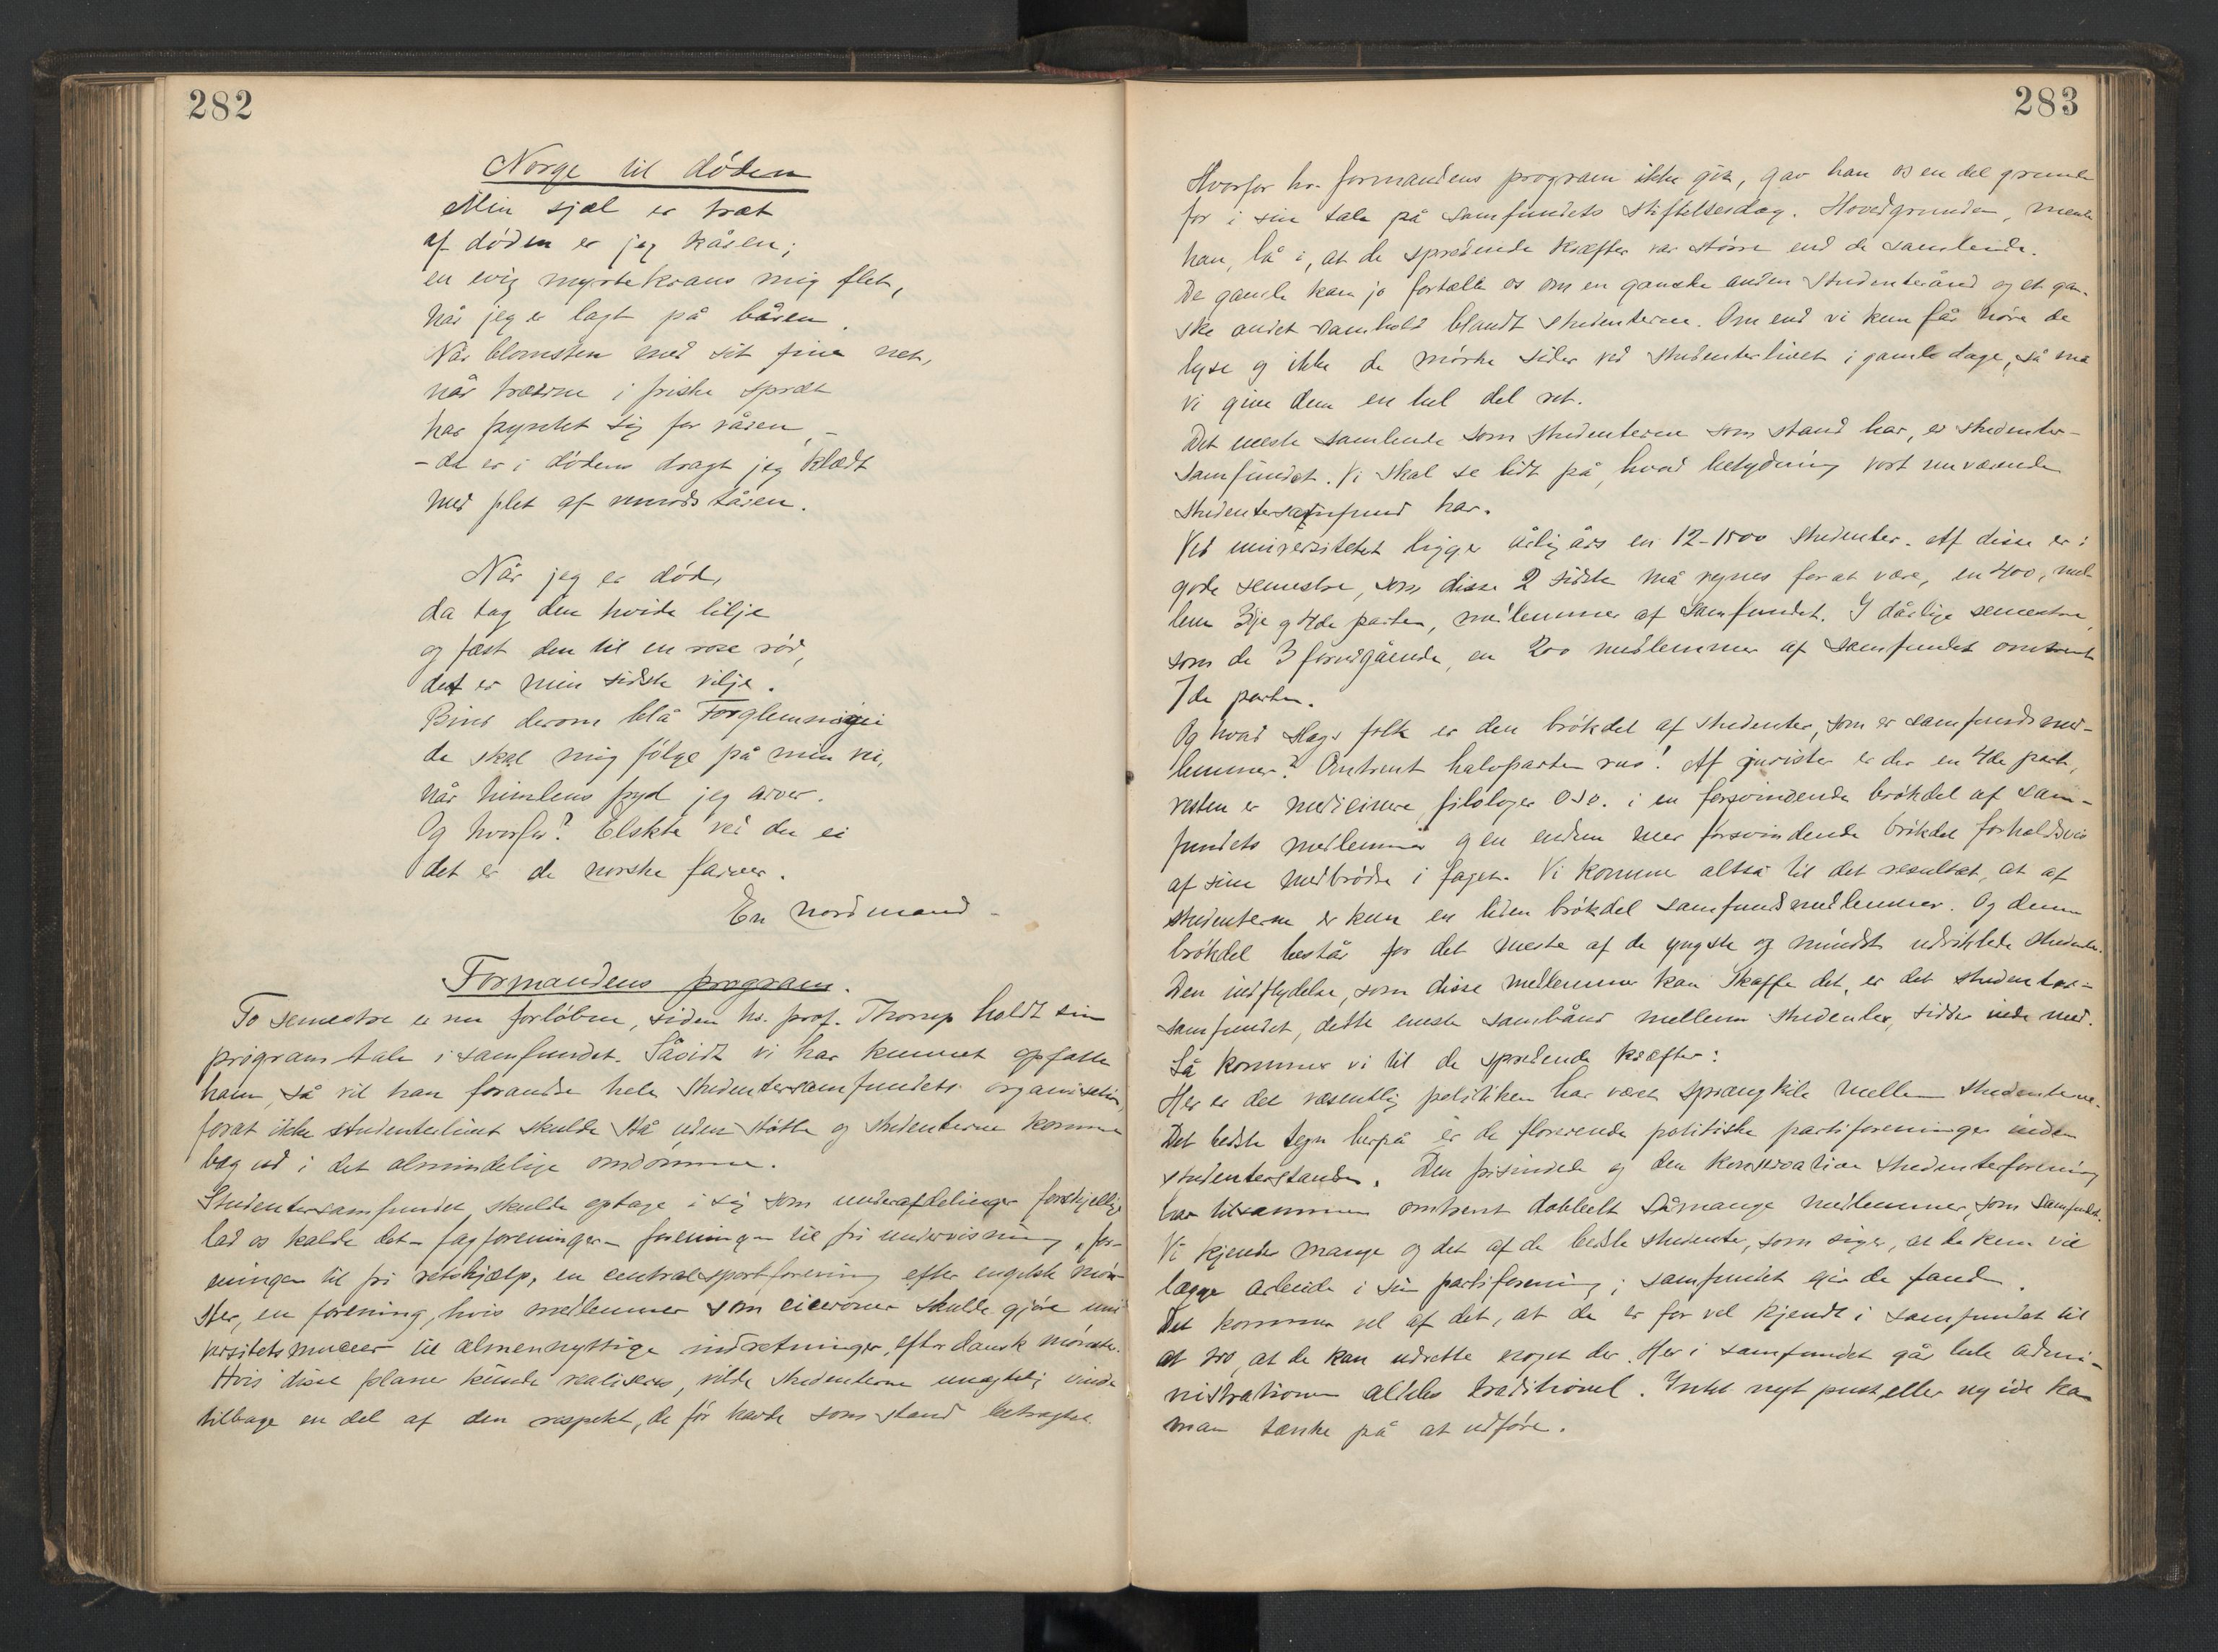 282
Norge til døden
Min sjæl er træt
af døden er jeg kåren;
en evig myrtekrans mig flet,
når jeg er lagt på båren.
Når blomsten med sit fine net,
når træerne i friske spræt
har pyntet sig for våren, –
– da er i dødens dragt jeg klædt
med plet af tåren.
Når jeg er død,
da tag den hvide lilje
og fæst den til en rose rød,
det er min sidste vilje.
Bind derom blå Forglemmigei
de skal mig følge på min vei,
når himlens fryd jeg arver.
Og hvorfor? Elskte ved du ei
det er de norske farver.
En nordmand
Formandens program.
To semestre er nu forløbne, siden hr. prof. Thorup holdt sin
programtale i samfundet. Såvidt vi har kunnet opfatte
ham, så vil han forandre hele studentersamfundets organisation,
forat ikke studenterlivet skulde stå uden støtte og studenterne komme
bag ud i det almindelige omdømme.
Studentersamfundet skulde optage i sig som underafdelinger forskjellige
lad os kalde det – fagforeninger – foreninger til fri undervisning, for-
eninger til fri retshjælp, en centralsportsforening efter engelsk møn-
ster, en forening, hvis medlemmer som ciceroner skulde gjøre uni
versitetsmuseer til almennyttige indretninger, efter dansk mønster.
Hvis disse planer kunde realiseres, vilde studenterne unegtelig vinde
tilbage en del af den respekt, de før havde som stand betragtet.
283
Hvorfor hr. formandens program ikke gik, gav han os en del grunde
for i sin tale på samfundets stiftelsesdag. Hovedgrunden, mente
han, lå i, at de spredende kræfter var større end de samlende.
De gamle kan jo fortælle os om en ganske anden studenterånd og et gan-
ske andet samhold blandt studenterne. Om end vi kun får høre de
lyse og ikke de mørke sider ved studenterlivet i gamle dage, så må
vi give dem en hel del ret.
Det meste samlende som studenterne som stand har, er studenter-
samfundet. Vi skal se lidt på, hvad betydning vort nuværende
studentersamfund har.
Ved universitetet ligger årlig års en 12–1500 studenter. Af disse er i
gode semestre, som disse 2 sidste må regnes for at være, en 400, mel
lem 3dje og 4de parten, medlemmer af samfundet. I dårlige semestre,
som de 3 foregående, en 200 medlemmer af samfundet omtrent
7de parten.
Og hvad slags folk er den brøkdel af studenter, som er samfundsmed-
lemmer? Omtrent halvparten rus! Af jurister er der en 4de part,
resten er medicinere, filologer o.s.v. i en forsvindende brøkdel af sam-
fundets medlemmer og en endnu mer forsvindende brøkdel forholdsvis
af sine medbrødre i faget. Vi kommer altså til det resultat, at af
studenterne er kun en liden brøkdel samfundsmedlemmer. Og denne
brøkdel består for det meste af de yngste og mindst udviklede studenter.
Den indflydelse, som disse medlemmer kan skaffe det, er det studenter-
samfundet, dette eneste sambånd mellem studenter, sidder inde med.
Så kommer vi til de spredende kræfter:
Her er det væsentlig politiken har været sprængkile mellem studenterne.
Det bedste tegn herpå er de florerende politiske partiforeninger inden
studenterstanden. Den frisindede og den konservative studenterforening
har tilsammen omtrent dobbelt såmange medlemmer, som samfundet.
Vi kjender mange og det af de bedste studenter, som siger, at de kun vil
lægge arbeide i sin partiforening; samfundet gir de fand.
Det kommer vel af det, at de er for vel kjendt i samfundet til
at tro, at de kan udrette noget der. Her i samfundet går hele admi-
nistrationen aldeles traditionel. Intet nyt pust, eller ny idé kan
man tænke på at udføre.